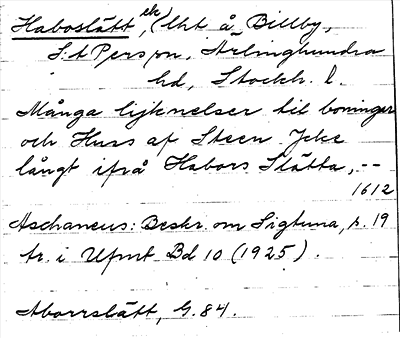 Haboslätt, ek, (lht å Billby,
S:t Pers sn, Ärlinghundra
hd, Stockh. l.
Många lijknelser til boningar
och Huus af Steen Icke
långt ifrå Habors Slätta, --
1612
Aschaneus: Beskr. om Sigtuna, p. 19
tr. i Upmt Bd 10 (1925).
Aborrslätt, G. 84.